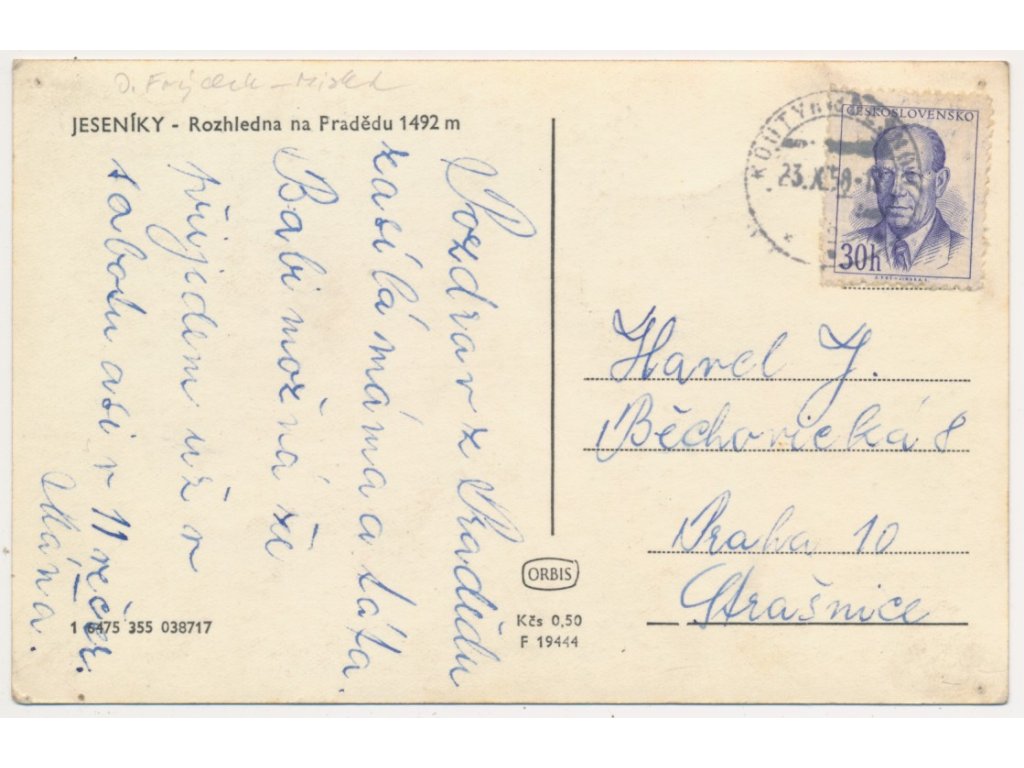 O. Frýdek-Místek
JESENÍKY - Rozhledna na Pradědu 1492 m
Pozdrav z Pradědu
zasílá máma a táta.
Babi možná že
přijedem už v
sobotu asi v 11 večer.
Máňa.
1 6475 355 038717
ORBIS
Kčs 0,50
F 19444
KOUTY
23.X.
ČESKOSLOVENSKO
30h
Havel J.
Běchovická 8
Praha 10
Strašnice